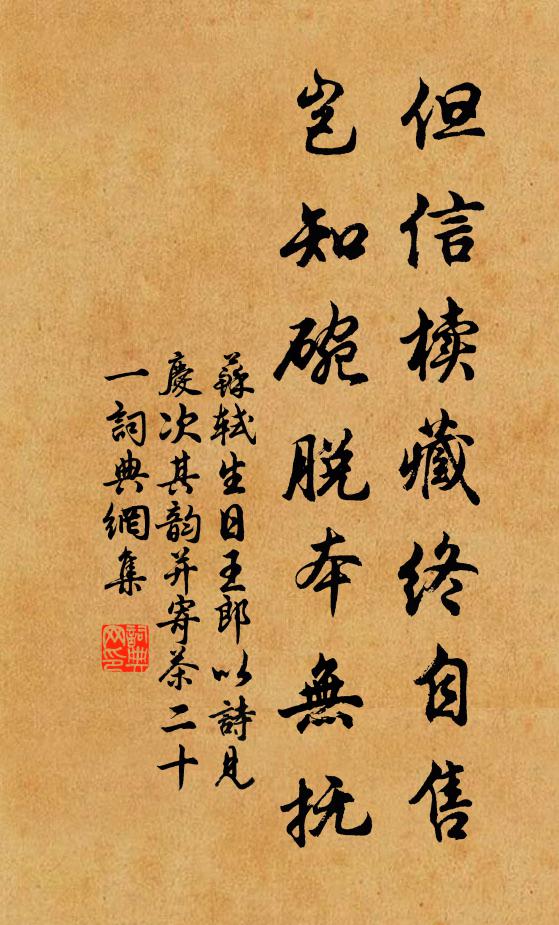 但信椟藏終自售
岂知碗脱本無抚
蘇軾生日王郎以詩見
慶次其韵并寄茶二十
一詞典網集
詞典
网印